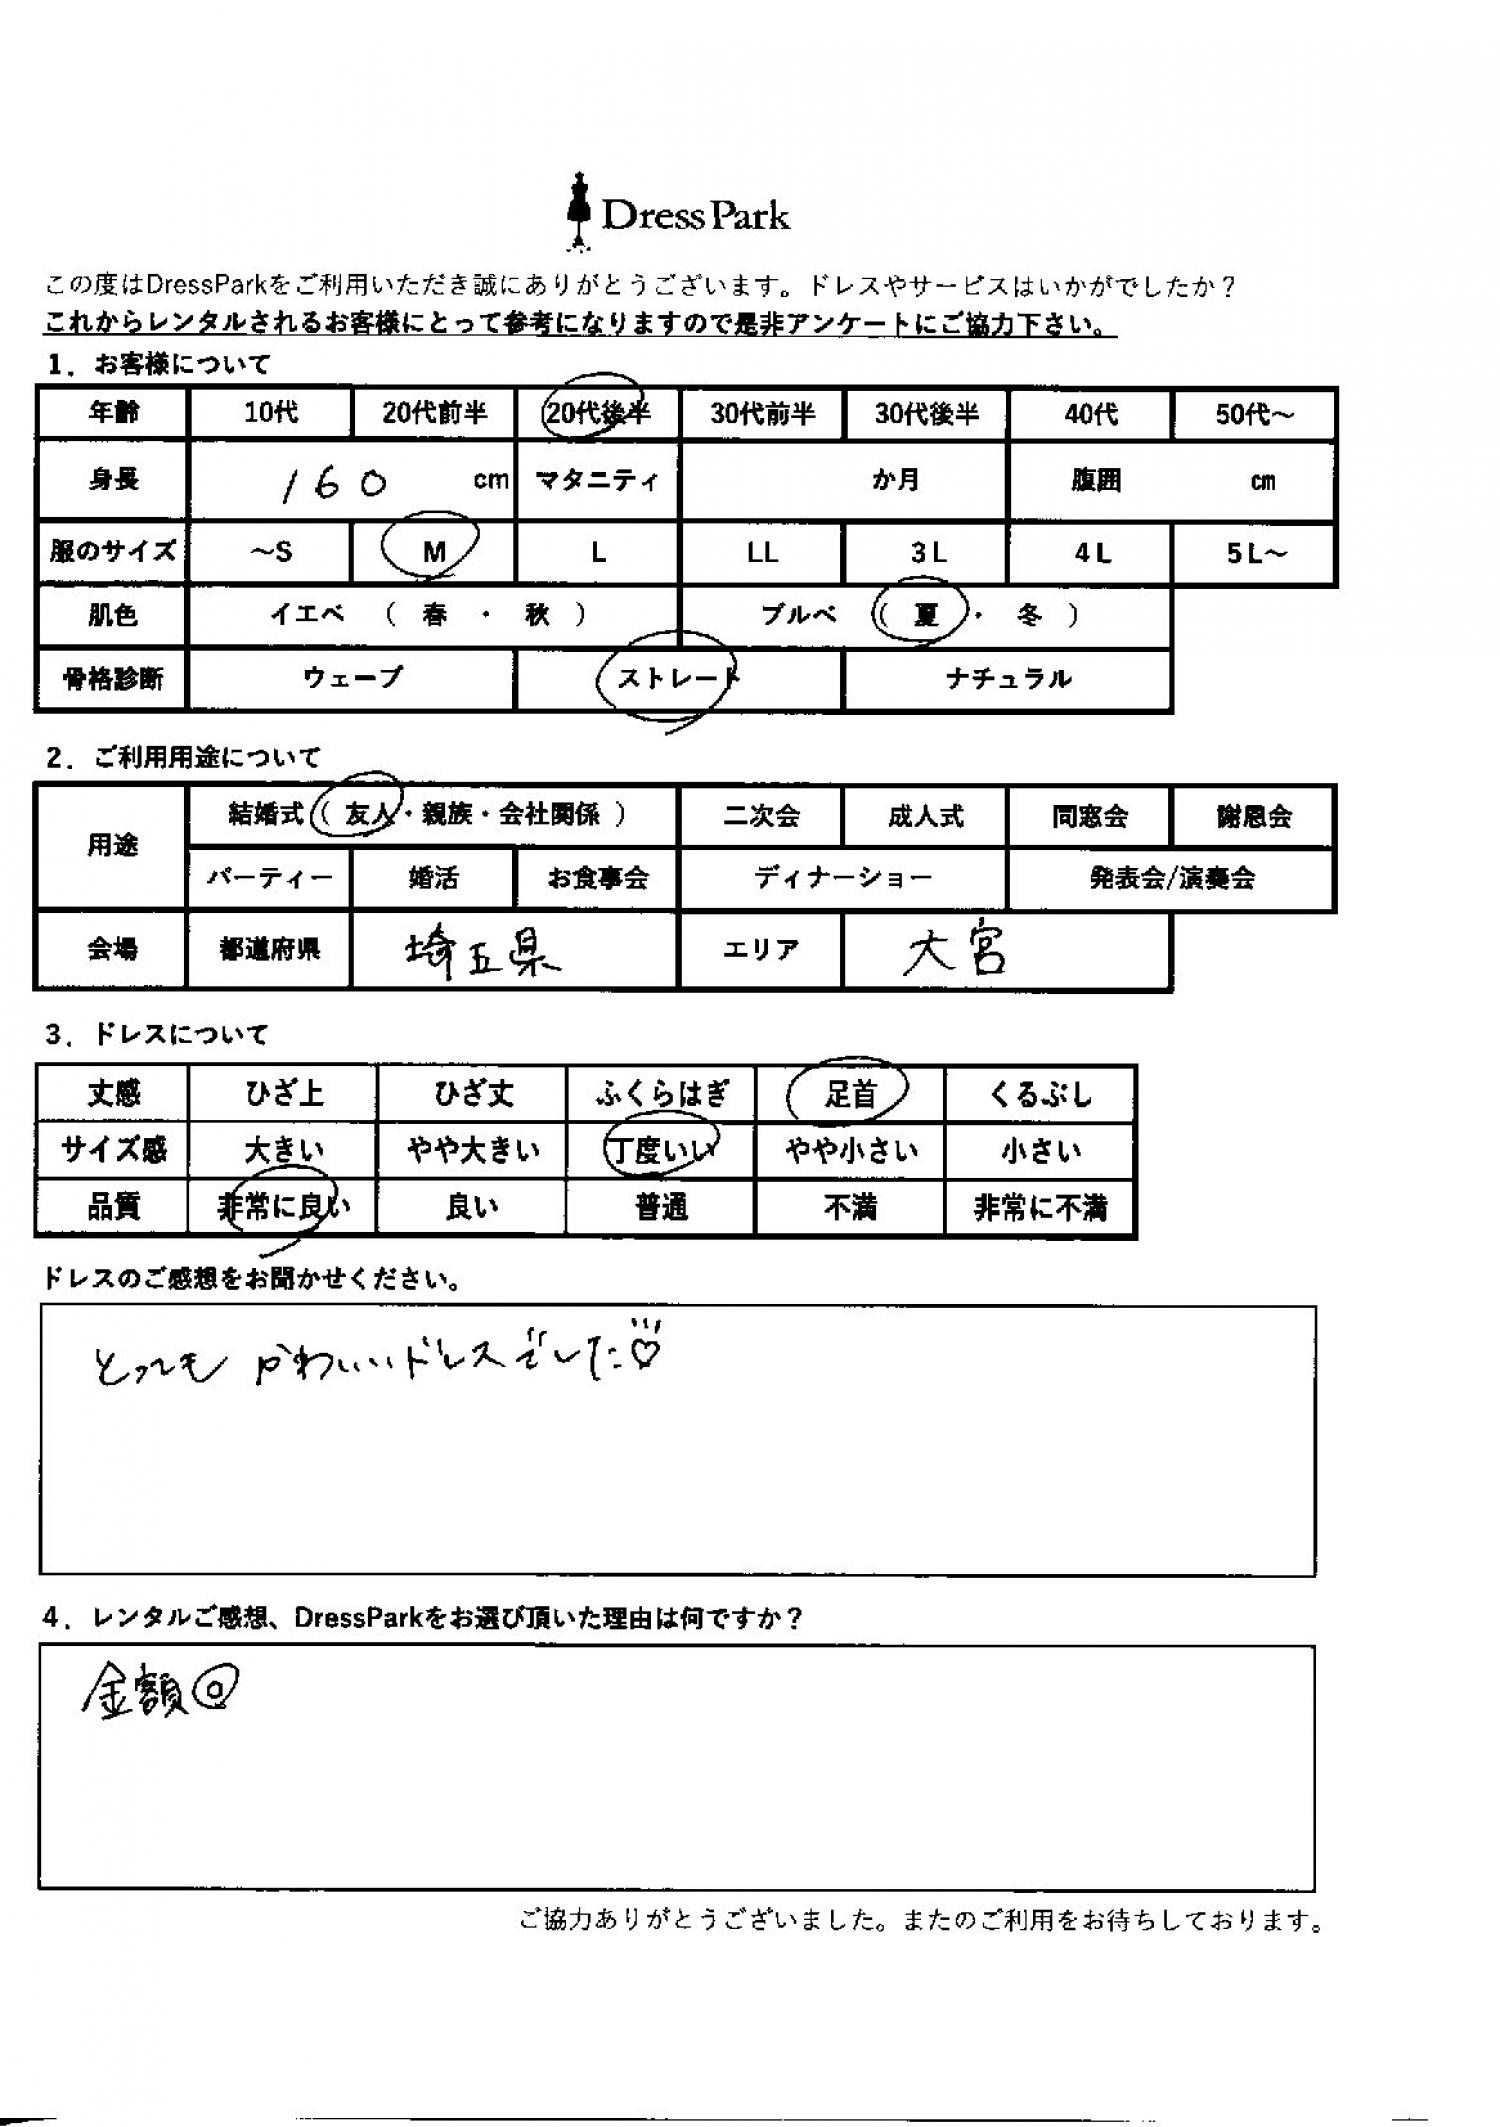 Dress Park
この度はDressParkをご利用いただき誠にありがとうございます。ドレスやサービスはいかがでしたか？
これからレンタルされるお客様にとって参考になりますので是非アンケートにご協力下さい。
1．お客様について
年齢 10代 20代前半 20代後半 30代前半 30代後半 40代 50代～
身長 160 cm マタニティ か月 腹囲 cm
服のサイズ ～S M L LL 3L 4L 5L～
肌色 イエベ （ 春 ・ 秋 ） ブルベ （ 夏 ・ 冬 ）
骨格診断 ウェーブ ストレート ナチュラル
2．ご利用用途について
用途 結婚式（ 友人・親族・会社関係 ） 二次会 成人式 同窓会 謝恩会
パーティー 婚活 お食事会 ディナーショー 発表会/演奏会
会場 都道府県 埼玉県 エリア 大宮
3．ドレスについて
丈感 ひざ上 ひざ丈 ふくらはぎ 足首 くるぶし
サイズ感 大きい やや大きい 丁度いい やや小さい 小さい
品質 非常に良い 良い 普通 不満 非常に不満
ドレスのご感想をお聞かせください。
とってもかわいいドレスでした♡
4．レンタルご感想、DressParkをお選び頂いた理由は何ですか？
金額◎
ご協力ありがとうございました。またのご利用をお待ちしております。